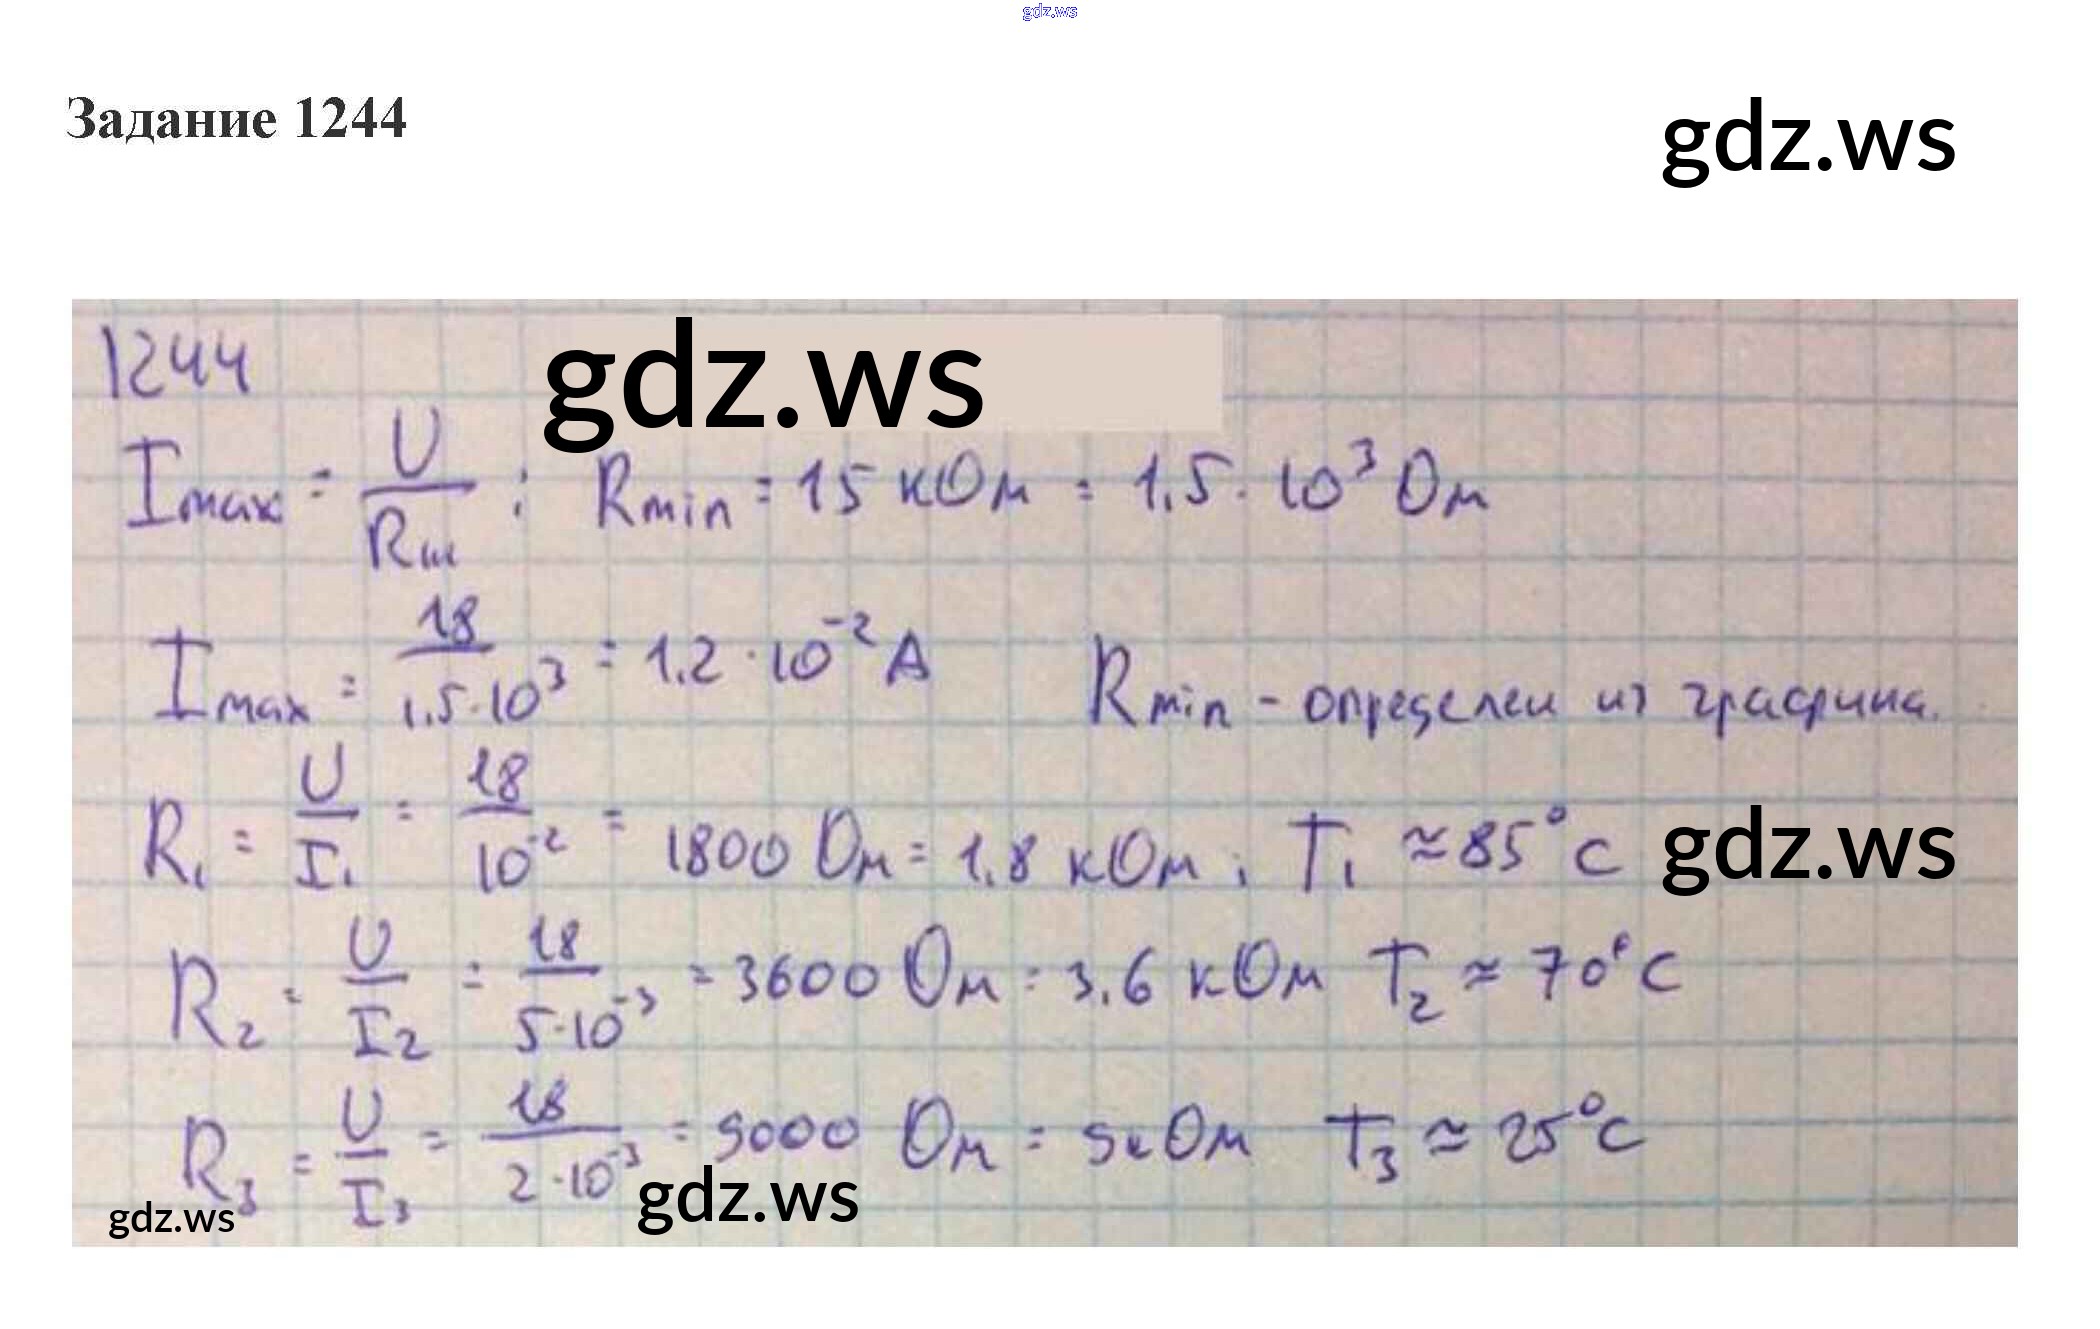 gdz.ws
Задание 1244
gdz.ws
1244
gdz.ws
Imax = U/Rm ; Rmin = 15 кОм = 1,5 · 10³ Ом
Imax = 18/1,5·10³ = 1,2 · 10⁻² А Rmin - определен из графика.
R₁ = U/I₁ = 18/10⁻² = 1800 Ом = 1,8 кОм ; T₁ ≈ 85°C
gdz.ws
R₂ = U/I₂ = 18/5·10⁻³ = 3600 Ом = 3,6 кОм T₂ ≈ 70°C
R₃ = U/I₃ = 18/2·10⁻³ = 9000 Ом = 9кОм T₃ ≈ 25°C
gdz.ws
gdz.ws